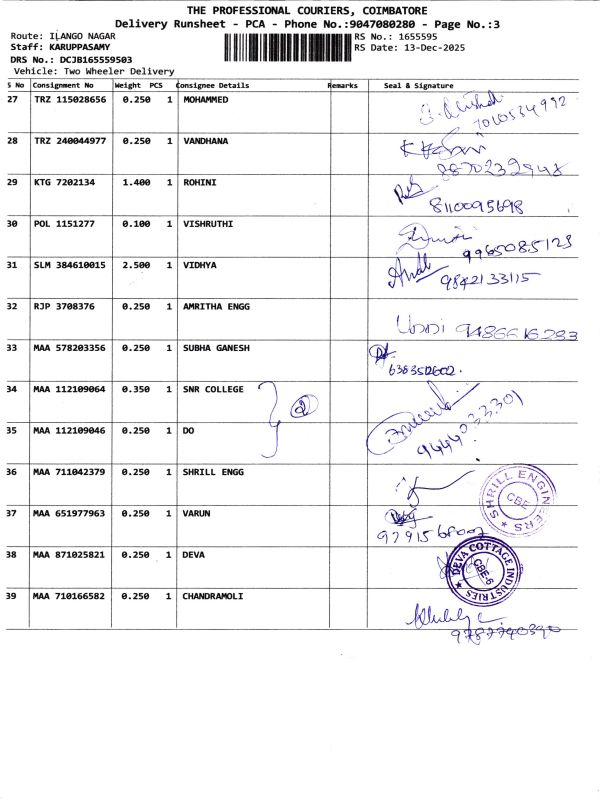 THE PROFESSIONAL COURIERS, COIMBATORE
Delivery Runsheet - PCA - Phone No.:9047080280 - Page No.:3
Route: ILANGO NAGAR RS No.: 1655595
Staff: KARUPPASAMY RS Date: 13-Dec-2025
DRS No.: DCJB165559503
Vehicle: Two Wheeler Delivery
S No Consignment No Weight PCS Consignee Details Remarks Seal & Signature
27 TRZ 115028656 0.250 1 MOHAMMED
7010534992
28 TRZ 240044977 0.250 1 VANDHANA
8870232948
29 KTG 7202134 1.400 1 ROHINI
8110095698
30 POL 1151277 0.100 1 VISHRUTHI
9965085123
31 SLM 384610015 2.500 1 VIDHYA
9842133115
32 RJP 3708376 0.250 1 AMRITHA ENGG
9486616283
33 MAA 578203356 0.250 1 SUBHA GANESH
6383512602
34 MAA 112109064 0.350 1 SNR COLLEGE
2
9444033301
35 MAA 112109046 0.250 1 DO
36 MAA 711042379 0.250 1 SHRILL ENGG
SHRILL ENGINEERS
CBE
37 MAA 651977963 0.250 1 VARUN
38 MAA 871025821 0.250 1 DEVA
DEVA COTTAGE INDUSTRIES
CBE-6
39 MAA 710166582 0.250 1 CHANDRAMOLI
9787790390